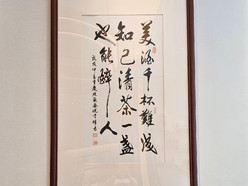 美酒千杯難成
知己清茶一盏
也能醉人